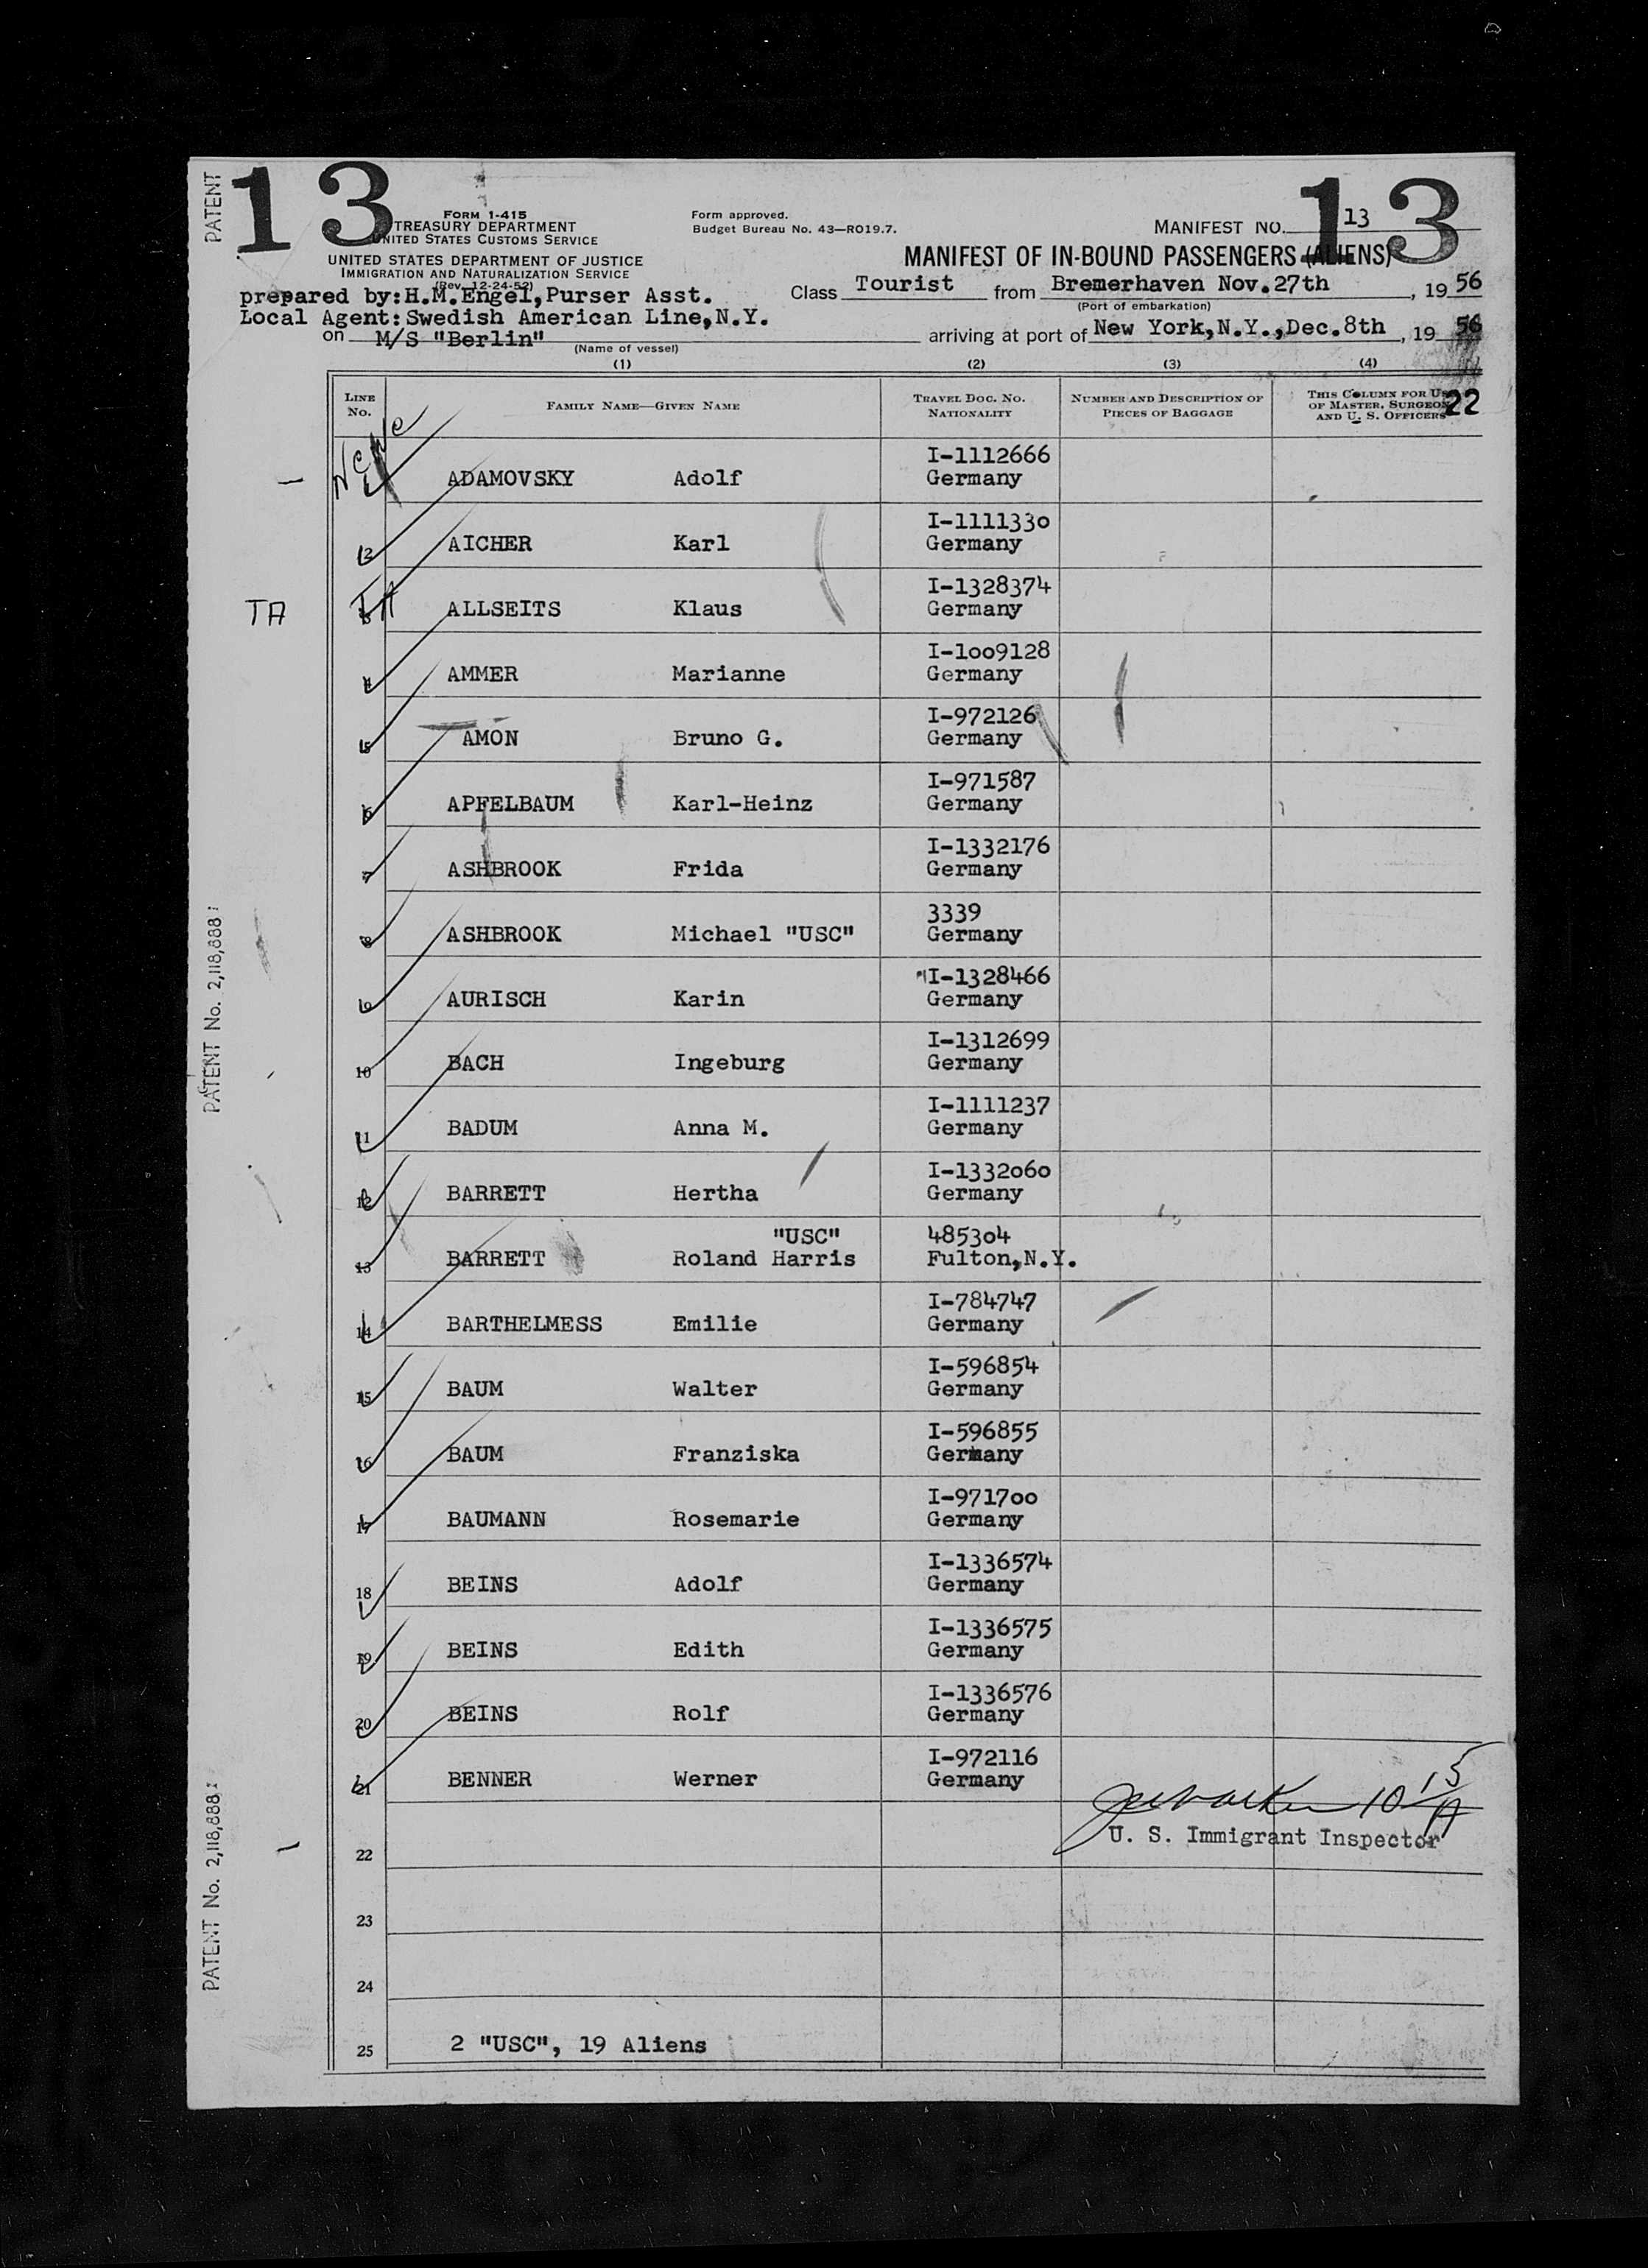 13
13
PATENT
FORM I-415
TREASURY DEPARTMENT
UNITED STATES CUSTOMS SERVICE
UNITED STATES DEPARTMENT OF JUSTICE
IMMIGRATION AND NATURALIZATION SERVICE
(Rev. 12-24-52)
Form approved.
Budget Bureau No. 43—RO19.7.
MANIFEST NO. 13
MANIFEST OF IN-BOUND PASSENGERS (ALIENS)
prepared by:H.M.Engel,Purser Asst.
Class Tourist from Bremerhaven Nov.27th, 19 56
(Port of embarkation)
Local Agent:Swedish American Line,N.Y.
on M/S "Berlin"
(Name of vessel)
arriving at port of New York,N.Y.,Dec.8th, 19 56
(1) (2) (3) (4)
LINE NO. FAMILY NAME—GIVEN NAME TRAVEL DOC. NO. NATIONALITY NUMBER AND DESCRIPTION OF PIECES OF BAGGAGE THIS COLUMN FOR USE OF MASTER, SURGEON AND U. S. OFFICERS
22
I-1112666
ADAMOVSKY Adolf Germany
I-1111330
2 AICHER Karl Germany
I-1328374
TA TA 3 ALLSEITS Klaus Germany
I-1009128
4 AMMER Marianne Germany
I-972126
5 AMON Bruno G. Germany
I-971587
6 APFELBAUM Karl-Heinz Germany
I-1332176
7 ASHBROOK Frida Germany
3339
8 ASHBROOK Michael "USC" Germany
I-1328466
9 AURISCH Karin Germany
I-1312699
10 BACH Ingeburg Germany
I-1111237
11 BADUM Anna M. Germany
I-1332060
12 BARRETT Hertha Germany
"USC" 485304
13 BARRETT Roland Harris Fulton,N.Y.
I-784747
14 BARTHELMESS Emilie Germany
I-596854
15 BAUM Walter Germany
I-596855
16 BAUM Franziska Germany
I-971700
17 BAUMANN Rosemarie Germany
I-1336574
18 BEINS Adolf Germany
I-1336575
19 BEINS Edith Germany
I-1336576
20 BEINS Rolf Germany
I-972116
21 BENNER Werner Germany
10 15 A
U. S. Immigrant Inspector
22
23
24
25 2 "USC", 19 Aliens
PATENT No. 2,118,888
PATENT No. 2,118,888